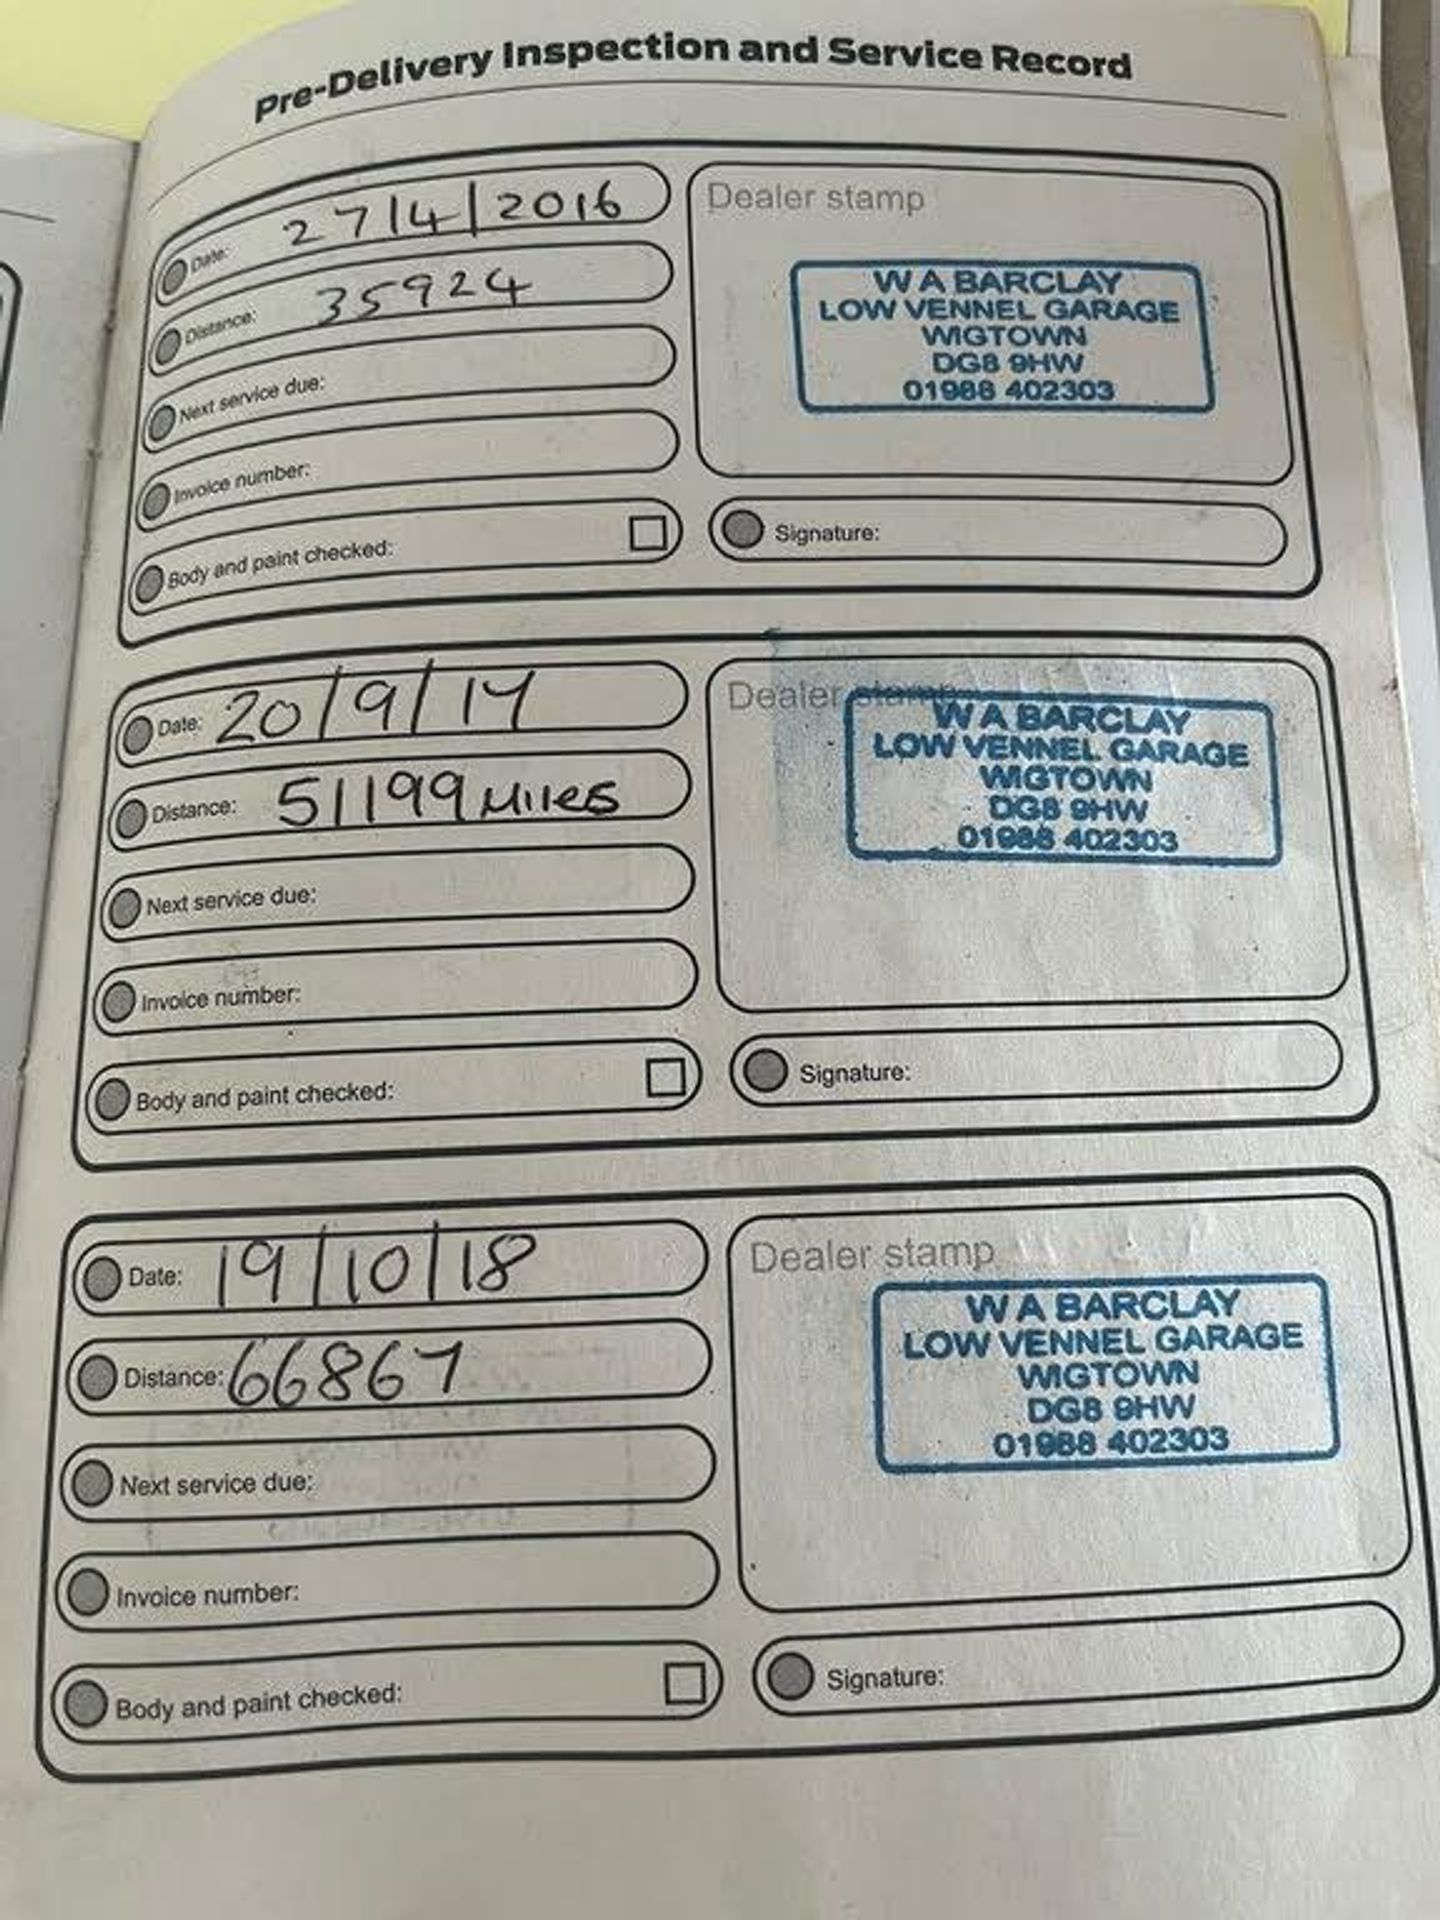 Pre-Delivery Inspection and Service Record
Date: 27/4/2016
Distance: 35924
Next service due:
Invoice number:
Body and paint checked:
Dealer stamp
W A BARCLAY
LOW VENNEL GARAGE
WIGTOWN
DG8 9HW
01988 402303
Signature:
Date: 20/9/17
Distance: 51199 Miles
Next service due:
Invoice number:
Body and paint checked:
Dealer stamp
W A BARCLAY
LOW VENNEL GARAGE
WIGTOWN
DG8 9HW
01988 402303
Signature:
Date: 19/10/18
Distance: 66867
Next service due:
Invoice number:
Body and paint checked:
Dealer stamp
W A BARCLAY
LOW VENNEL GARAGE
WIGTOWN
DG8 9HW
01988 402303
Signature: